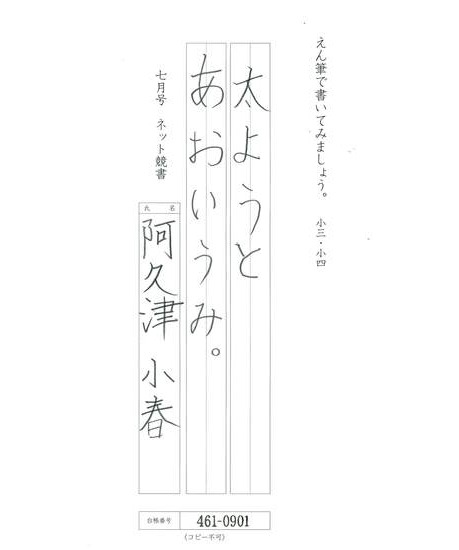 えん筆で書いてみましょう。　小三・小四
太ようと
あおいうみ。
七月号　ネット競書
氏名
阿久津　小春
台帳番号　461-0901
(コピー不可)